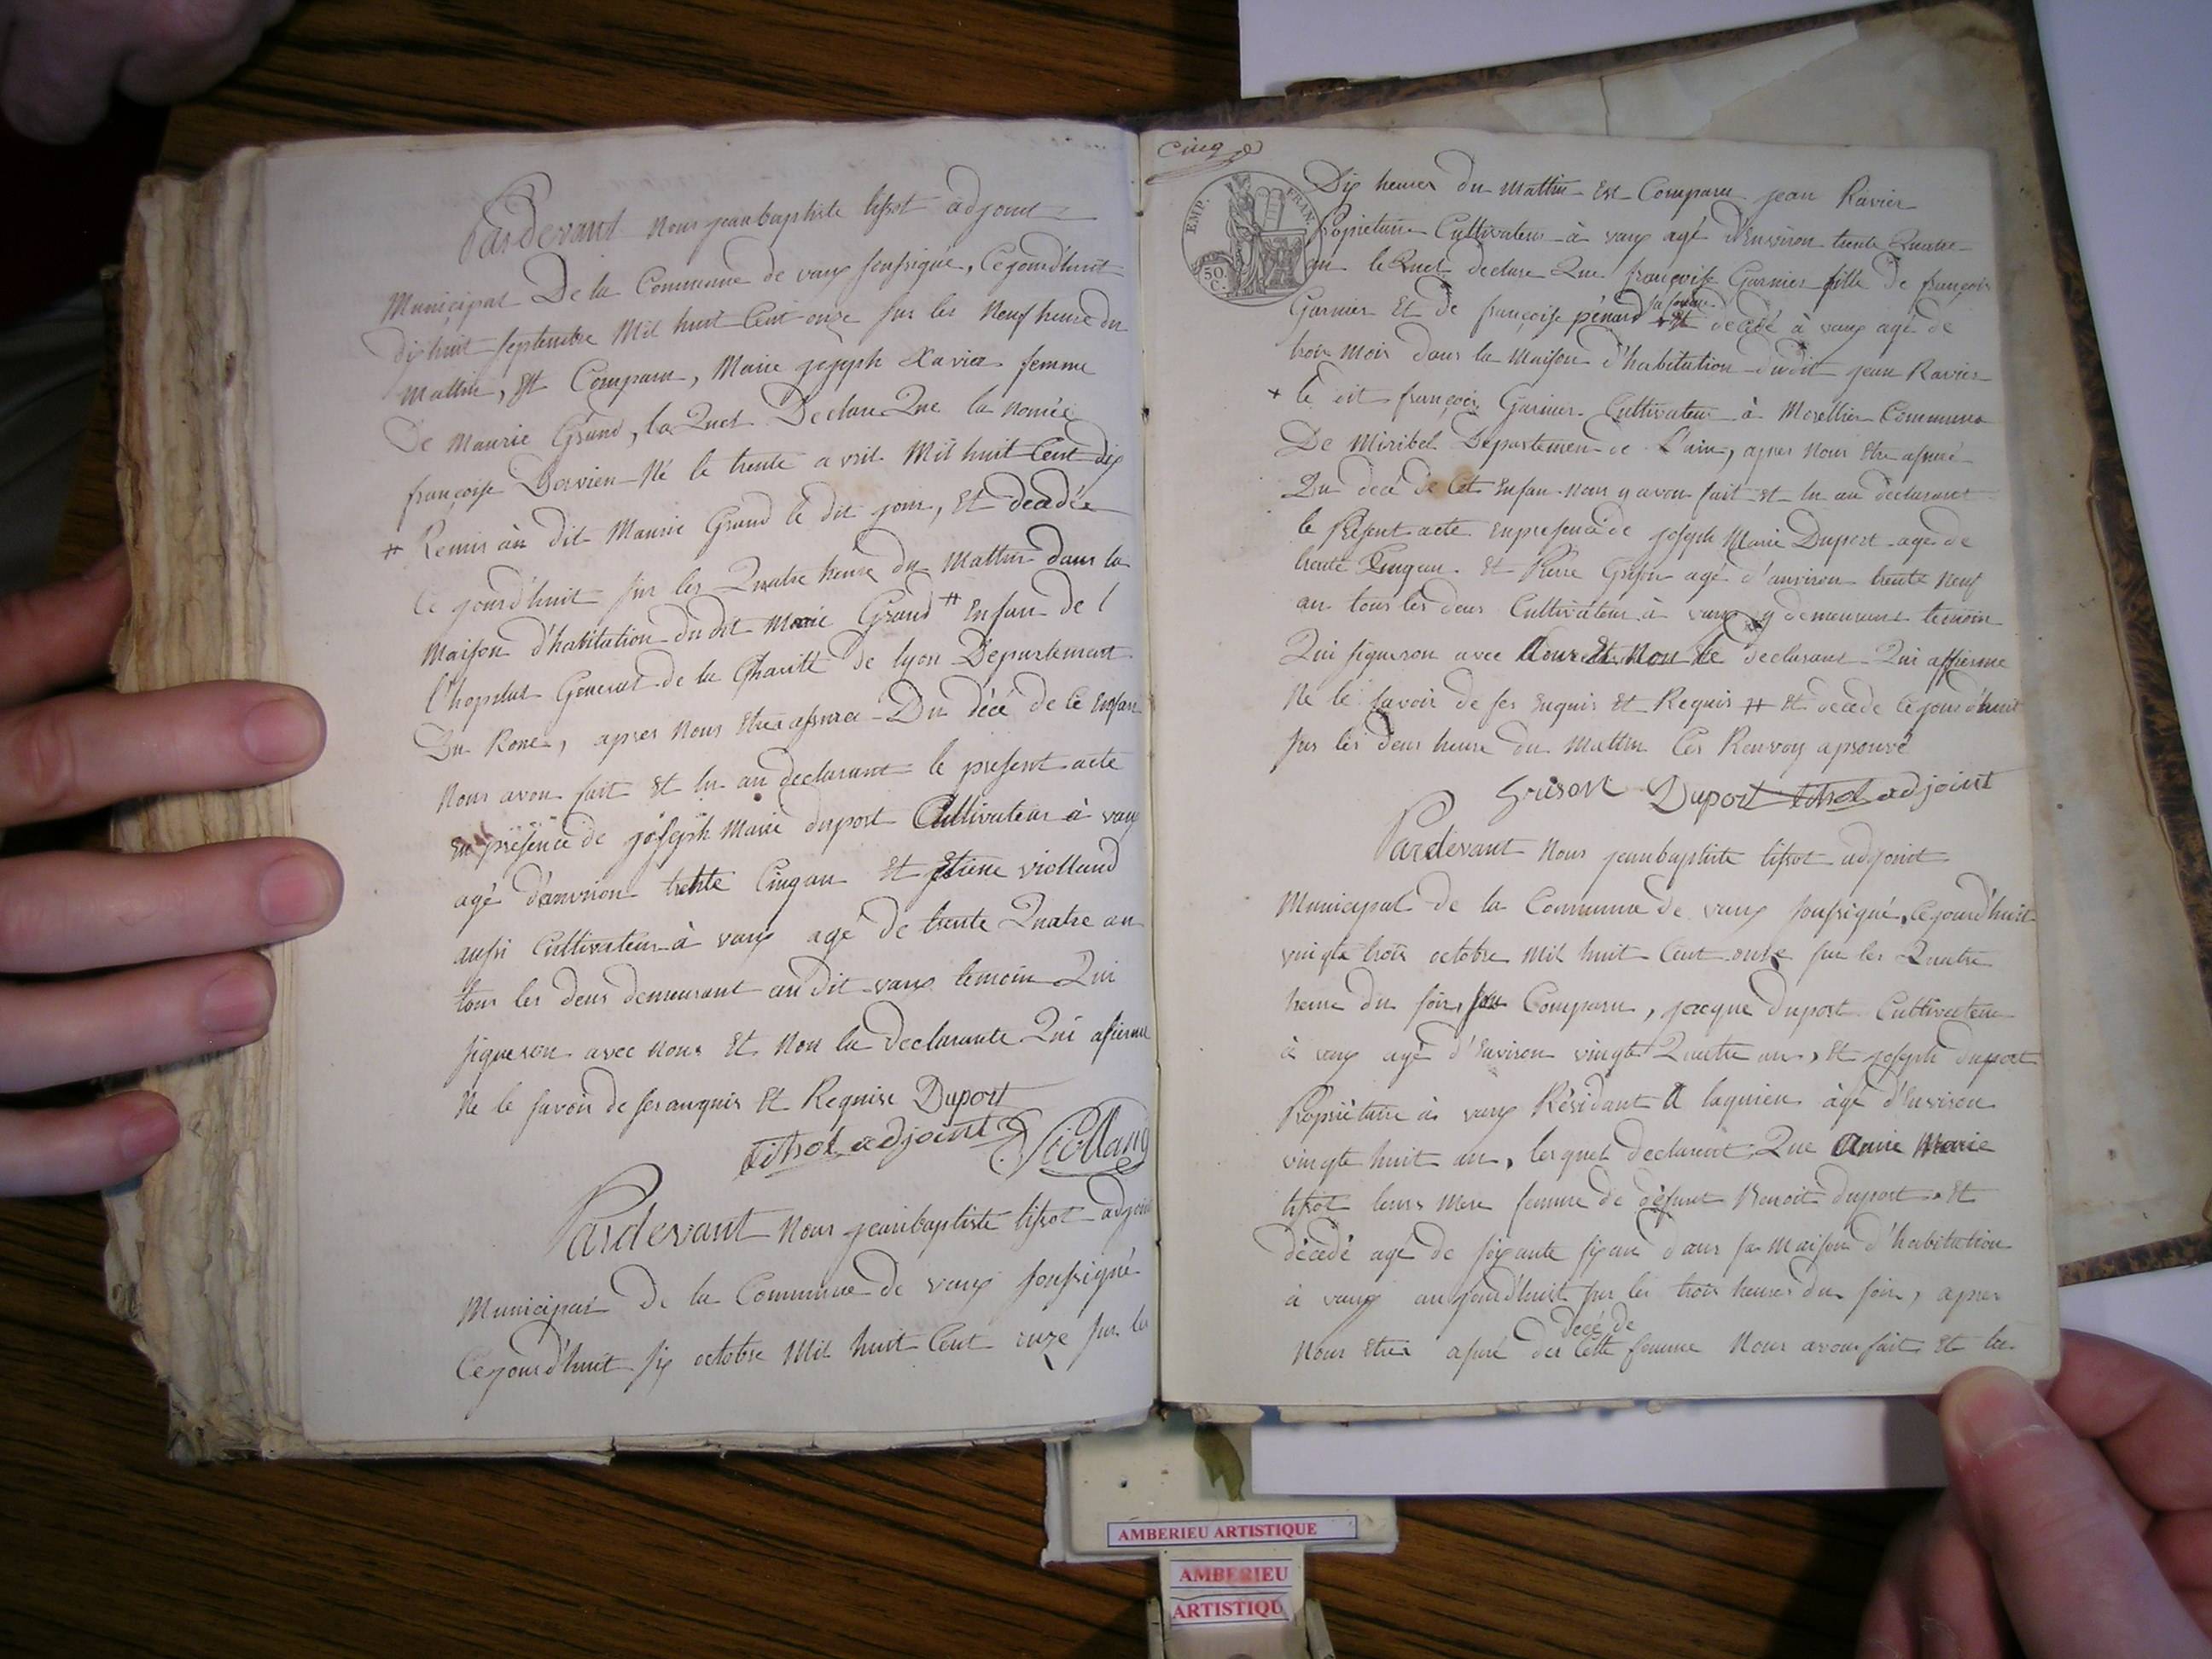 Pardevant nous jeanbaptiste tissot adjoint
Municipal De la Commune de vaux soussigné, Cejourd'huit
dix huit septembre Mil huit Cent onze sur les Neuf heure du
Mattin, Et Comparu, Marie jojeph Xavier femme
De Maurie Grand, la Quel Declare Que la nomée
françoise Dervieu Né le trente avril Mil huit Cent dix
# Remis au dit Maurie Grand le dit jour, Et decedée
Ce jourd'huit sur les Quatre heure du Mattin dans la
Maison d'habitation du dit Marie Grand # Enfan de l
l'hopital General de la Charitt de lyon Departement
Du Rone, apres Nous Etre assuré Du décé de Ce Enfan
Nous avon fait Et lu au declarant le present acte
En présence de joseph Marie duport Cultivateur à vaux
agé d'anvirion trente Cinq an Et Etiene violland
aussi Cultivateur à vaux agé de trente Quatre an
tous les deux demeurant au dit vaux temoin Qui
signeron avec nous Et Non la declarante Qui afirme
Ne le savoir de ses anquis Et Requise Duport
tissot adjoint Violland
Pardevant Nous jeanbaptiste tissot adjoint
Municipal De la Commune de vaux soussigné
Cejourd'huit six octobre Mil huit Cent onze sur les
Cinq
EMP. FRAN.
50. C.
Dix heures du Mattin Est Comparu jean Ravier
Propriétaire Cultivateur à vaux agé d'Environ trente Quatre
an le Quel declare Que françoise Garnier fille de françois
sa femme
Garnier Et de françoise pénard # Et decedé à vaux agé de
trois Mois dans la Maison d'habitation du dit jean Ravier
+ le dit françois Garnier Cultivateur à Morellier Commune
De Miribel Departemen de l'ain, apres Nous Etre assuré
Du décé de Cet Enfan nous y avon fait Et lu au declarant
le Présent acte En presence de joseph Marie Duport agé de
trente Cinq an. Et Pierre Grison agé d'anviron trente Neuf
an tous les deux Cultivateur à vaux y demeurant temoin
Qui signeron avec Nous Et Non le declarant Qui affirme
Ne le savoir de ses Enquis Et Requis # Et decede Cejourd'huit
sur les deux heure du Mattin Ces Renvoy aprouvé
Grison Duport tissot adjoint
Pardevant Nous jeanbaptiste tissot adjoint
Municipal de la Commune de vaux soussigné, Cejourd'huit
vingte trois octobre Mil huit Cent onze sur les Quatre
heure du soir, Comparu, jacque duport Cultivateur
à vaux agé d'Environ vingte Quatre an, Et joseph duport
Propriétaire à vaux Résidant A lagnieu âgé d'Environ
vingte huit an, lesquel declarent Que Anne Marie
tissot leurs Mere femme de défunt Benoit duport Et
décedé agé de soixante six an dans sa Maison d'habitation
à vaux aujourd'huit sur les trois heures du soir, apres
décé de
Nous Etre assuré de Cette femme Nous avons fait Et lu
AMBERIEU ARTISTIQUE
AMBERIEU
ARTISTIQU